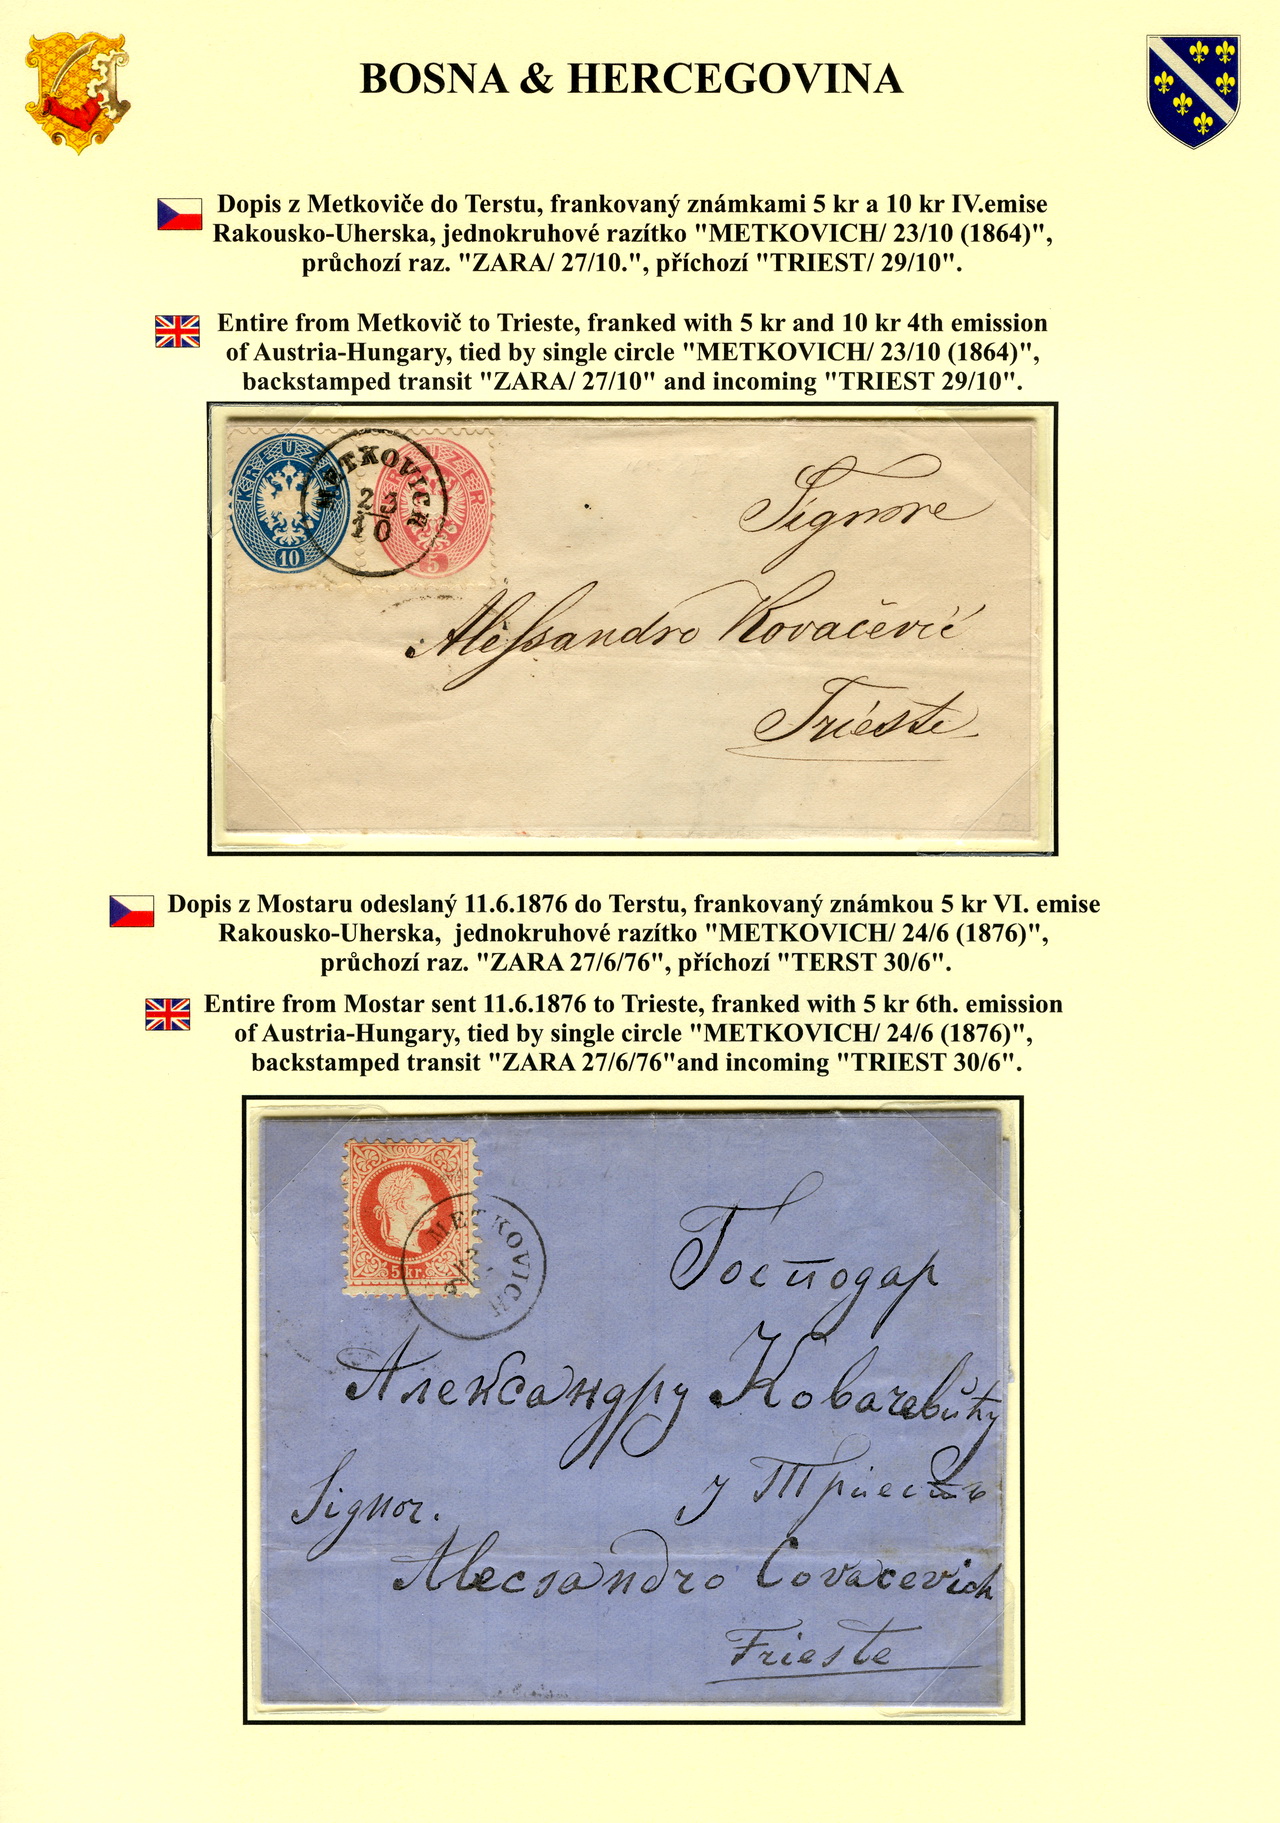 BOSNA & HERCEGOVINA
Dopis z Metkoviče do Terstu, frankovaný známkami 5 kr a 10 kr IV.emise
Rakousko-Uherska, jednokruhové razítko "METKOVICH/ 23/10 (1864)",
průchozí raz. "ZARA/ 27/10.", příchozí "TRIEST/ 29/10".
Entire from Metkovič to Trieste, franked with 5 kr and 10 kr 4th emission
of Austria-Hungary, tied by single circle "METKOVICH/ 23/10 (1864)",
backstamped transit "ZARA/ 27/10" and incoming "TRIEST 29/10".
KREUZER
10
5
METKOVICH
23
10
Signore
Alessandro Kovačević
Trieste
Dopis z Mostaru odeslaný 11.6.1876 do Terstu, frankovaný známkou 5 kr VI. emise
Rakousko-Uherska, jednokruhové razítko "METKOVICH/ 24/6 (1876)",
průchozí raz. "ZARA 27/6/76", příchozí "TERST 30/6".
Entire from Mostar sent 11.6.1876 to Trieste, franked with 5 kr 6th. emission
of Austria-Hungary, tied by single circle "METKOVICH/ 24/6 (1876)",
backstamped transit "ZARA 27/6/76"and incoming "TRIEST 30/6".
5 kr.
METKOVICH
Господар
Александру Ковачевићу
у
Signor.
Alecsandro Covacevich
Trieste